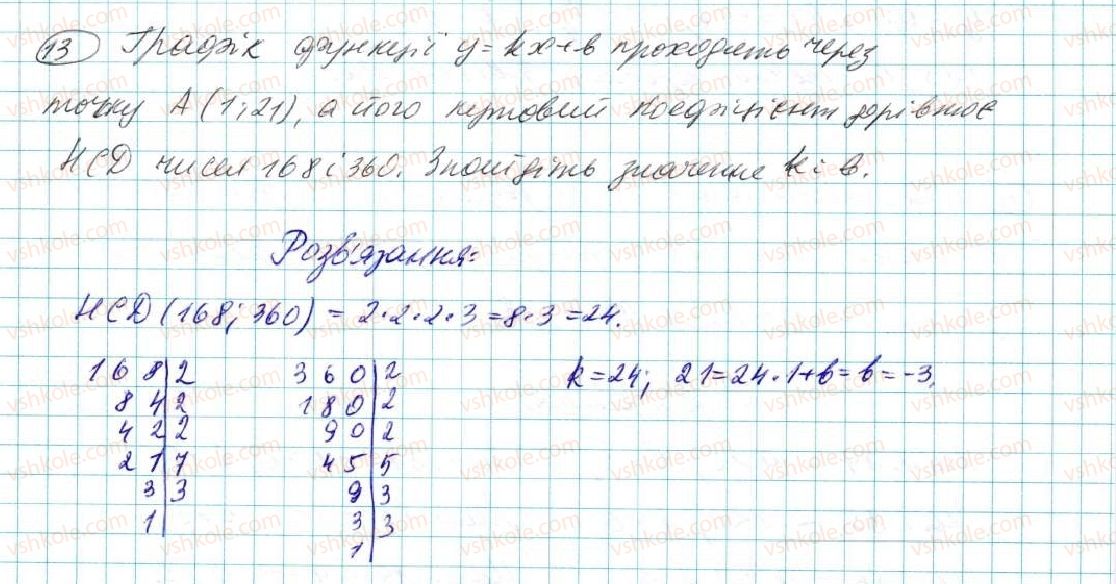 13 Графік функції y = kx + b проходить через
точку A (1; 21), а його кутовий коефіцієнт дорівнює
НСД чисел 168 і 360. Знайдіть значення k і b.
Розв'язання:
НСД (168; 360) = 2·2·2·3 = 8·3 = 24.
168|2 360|2 k = 24; 21 = 24·1 + b = b = -3.
84|2 180|2
42|2 90|2
21|7 45|5
3|3 9|3
1| 3|3
1|